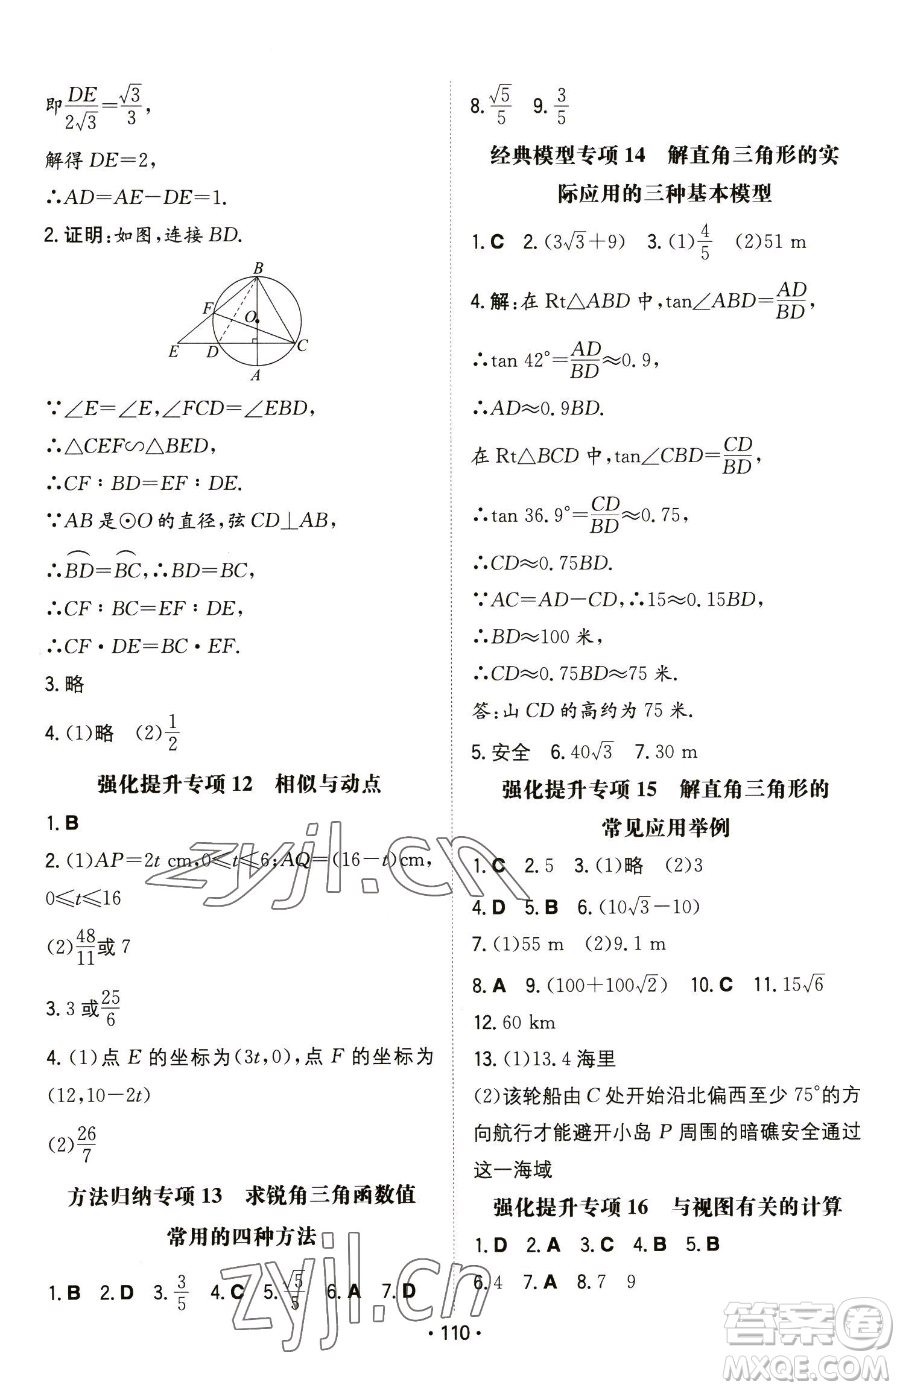 即DE/2√3=√3/3,
解得 DE=2,
∴AD=AE−DE=1.
2. 证明:如图,连接 BD.
B
F
O
E
D
C
A
∵∠E=∠E,∠FCD=∠EBD,
∴△CEF∽△BED,
∴CF∶BD=EF∶DE.
∵AB 是⊙O 的直径,弦 CD⊥AB,
∴⌒BD=⌒BC,∴BD=BC,
∴CF∶BC=EF∶DE,
∴CF·DE=BC·EF.
3. 略
4. (1)略 (2)1/2
强化提升专项 12 相似与动点
1. B
2. (1)AP=2t cm,0⩽t⩽6;AQ=(16−t)cm,
0⩽t⩽16
(2)48/11或 7
3. 3 或25/6
4. (1)点 E 的坐标为(3t,0),点 F 的坐标为
(12,10−2t)
(2)26/7
方法归纳专项 13 求锐角三角函数值
常用的四种方法
1. B 2. D 3. 3/5 4. C 5. √5/5 6. A 7. D
8. √5/5 9. 3/5
经典模型专项 14 解直角三角形的实
际应用的三种基本模型
1. C 2. (3√3+9) 3. (1)4/5 (2)51 m
4. 解:在 Rt△ABD 中,tan∠ABD=AD/BD,
∴tan 42°=AD/BD≈0. 9,
∴AD≈0. 9BD.
在 Rt△BCD 中,tan∠CBD=CD/BD,
∴tan 36. 9°=CD/BD≈0. 75,
∴CD≈0. 75BD.
∵AC=AD−CD,∴15≈0. 15BD,
∴BD≈100 米,
∴CD≈0. 75BD=75 米.
答:山 CD 的高约为 75 米.
5. 安全 6. 40√3 7. 30 m
强化提升专项 15 解直角三角形的
常见应用举例
1. C 2. 5 3. (1)略 (2)3
4. D 5. B 6. (10√3−10)
7. (1)55 m (2)9. 1 m
8. A 9. (100+100√2) 10. C 11. 15√6
12. 60 km
13. (1)13. 4 海里
(2)该轮船由 C 处开始沿北偏西至少 75°的方
向航行才能避开小岛 P 周围的暗礁安全通过
这一海域
强化提升专项 16 与视图有关的计算
1. D 2. A 3. C 4. B 5. B
6. 4 7. A 8. 7 9
· 110 ·
zyjl.cn
zyjl.cn
答案圈
MXQE.COM